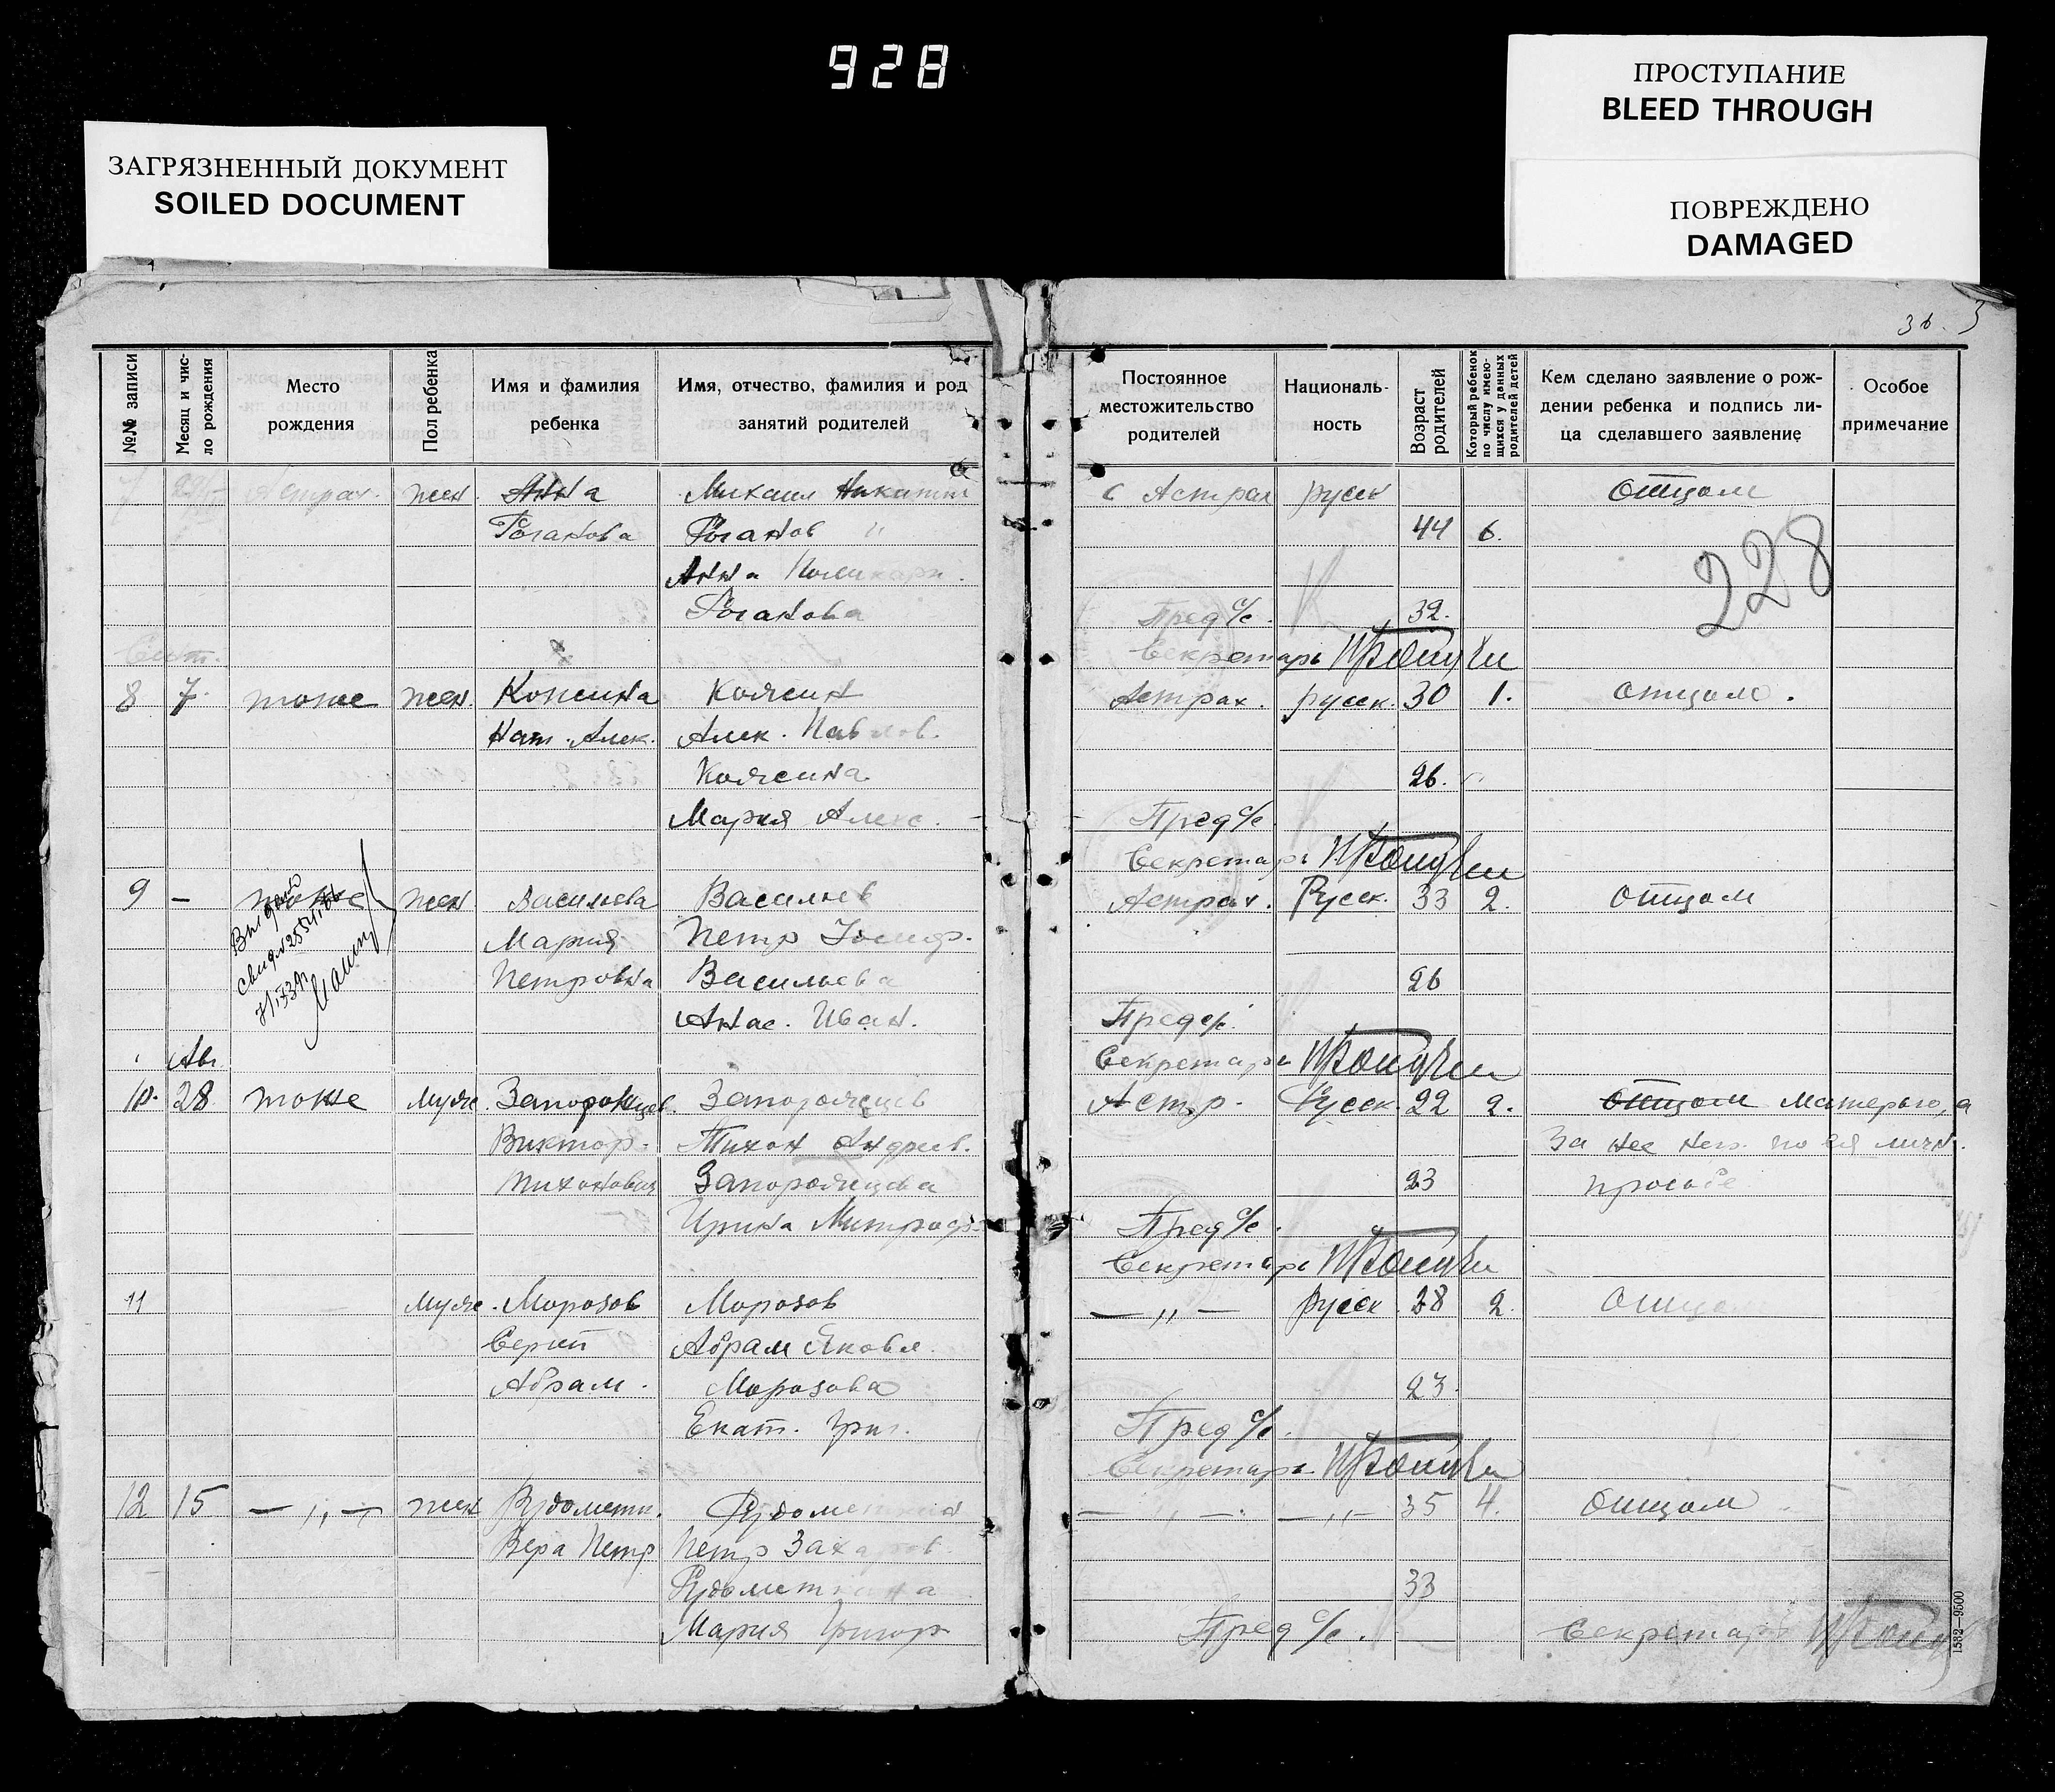 928
ПРОСТУПАНИЕ
BLEED THROUGH
ЗАГРЯЗНЕННЫЙ ДОКУМЕНТ
SOILED DOCUMENT
ПОВРЕЖДЕНО
DAMAGED
36. 3
№№ записи
Месяц и чис-
ло рождения
Место
рождения
Пол ребенка
Имя и фамилия
ребенка
Имя, отчество, фамилия и род
занятий родителей
Постоянное
местожительство
родителей
Националь-
ность
Возраст
родителей
Который ребенок
по числу имею-
щихся у данных
родителей детей
Кем сделано заявление о рож-
дении ребенка и подпись ли-
ца сделавшего заявление
Особое
примечание
7 Астрах. жен. Анна Михаил Никитич с Астрах русск Отцом
Роганова Роганов " 44 6.
Анна
Роганова Пред с/с. 32.
228
Сент. Секретарь
8 7. тоже жен. Консина Колсин Астрах. русск. 30 1. отцом.
Нат. Алек. Алек. Павлов.
Колсина 26.
Мария Алекс. Пред с/с.
Секретарь
9 — тоже жен Васильева Васильев Астрах. Русск. 33 2. Отцом
Выдано
Мария Петр
Петровна Васильева 26
Анас. Иван. Пред с/с.
Ав. Секретарь
10. 28 тоже муж. Запорожцев. Запорожцев Астр. Русск. 22 2. Отцом Матерью, а
Виктор. Тихон Андреев. за нее по ея личн.
Тихонович Запорожцева 23 просьбе
Ирина Митроф. Пред с/с.
Секретарь
11 муж. Морозов Морозов — " — русск. 28 2. Отцо
Сергей Абрам Яковл.
Абрам. Морозова 23.
Екат. Григ. Пред с/с.
Секретарь
12 15 — " — жен Рудометк. Рудометкин — " — — " — 35 4. Отцом
Вера Петр Петр Захаров.
Рудометкина 33
Мария Григор Пред с/с. Секретарь
1582—9500